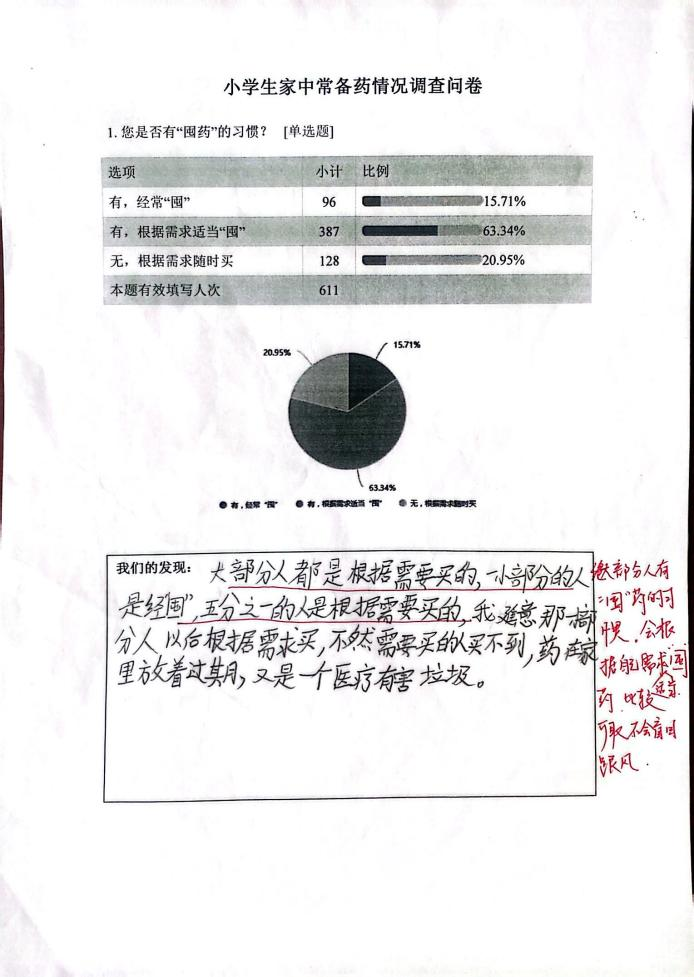 小学生家中常备药情况调查问卷
1. 您是否有“囤药”的习惯？ [单选题]
选项 小计 比例
有，经常“囤” 96 15.71%
有，根据需求适当“囤” 387 63.34%
无，根据需求随时买 128 20.95%
本题有效填写人次 611
20.95%
15.71%
63.34%
有，经常“囤” 有，根据需求适当“囤” 无，根据需求随时买
我们的发现：大部分人都是根据需要买的，一小部分的人
是经囤”，五分之一的人是根据需要买的，我 那一部
分人以后根据需求买，不然需要买的人买不到，药在家
里放着过其月，又是一个医疗有害垃圾。
部分人有
“囤”药的习
惯，会根
据自己需求囤
药，比较
可取不会盲目
跟风．